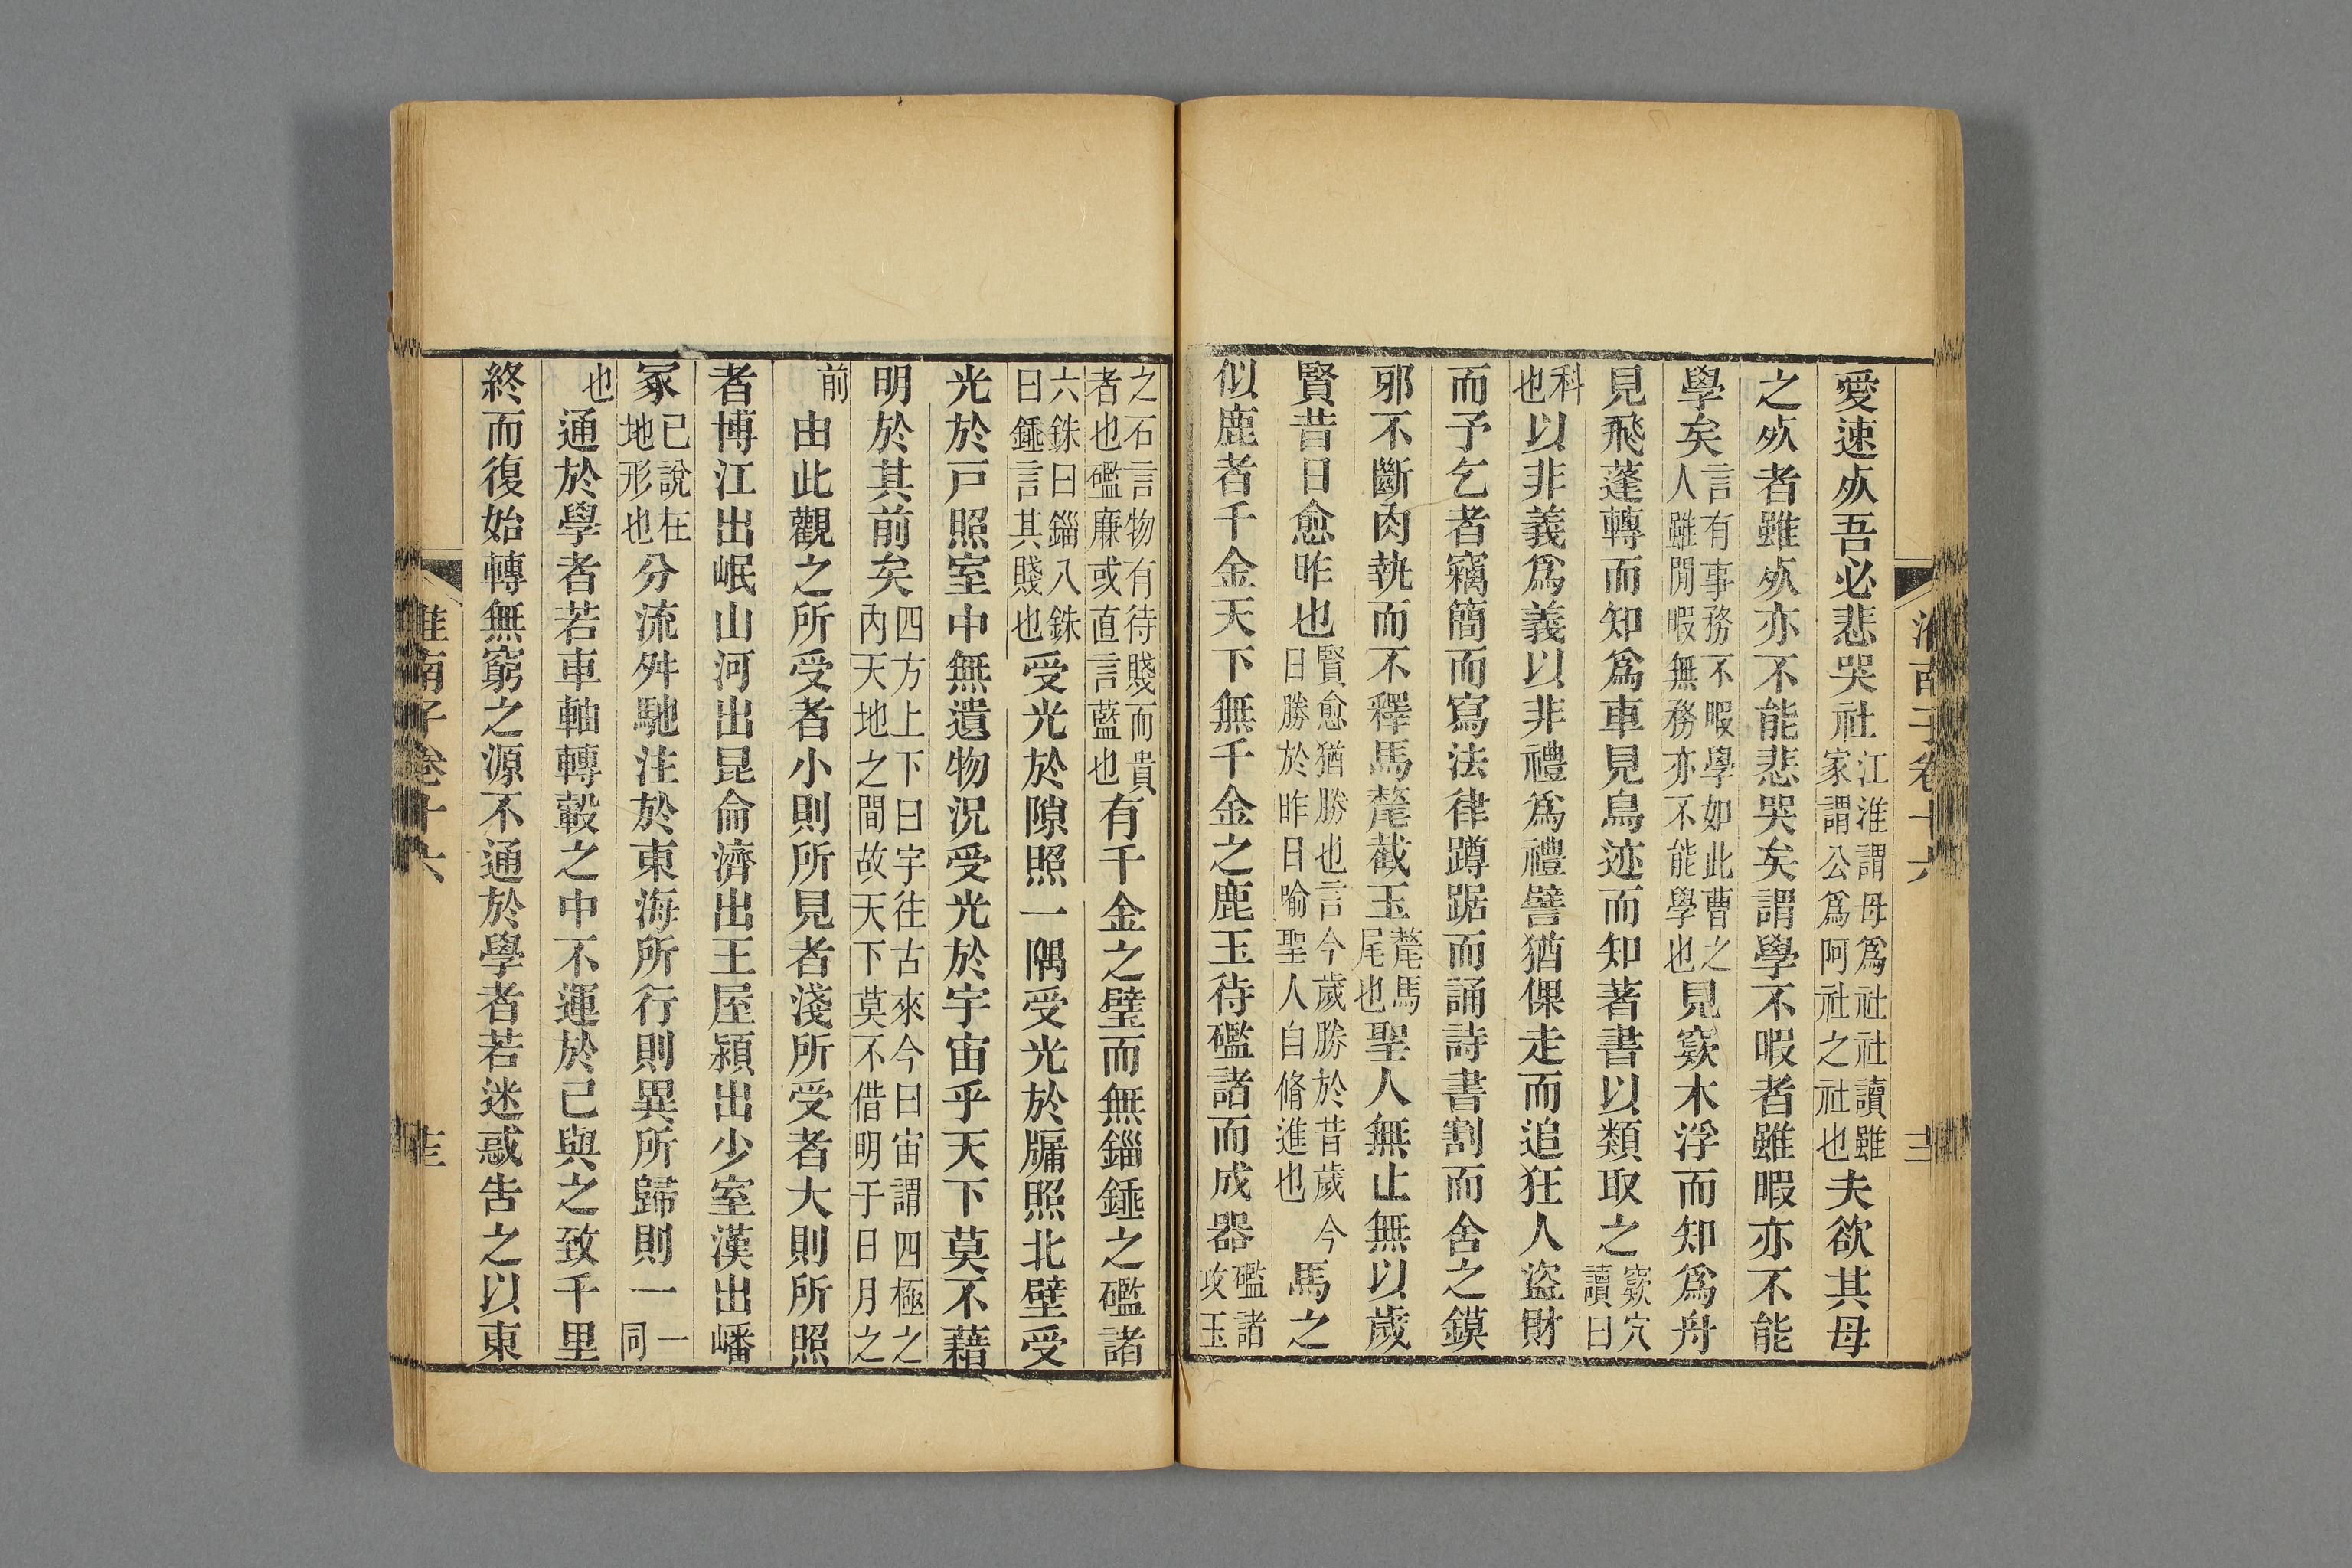 愛速㱙吾必悲哭社江淮謂母爲社社讀雖家謂公爲阿社之社也夫欲其母
之㱙者雖㱙亦不能悲哭矣謂學不暇者雖暇亦不能
學矣言有事務不暇學如此曹之人雖閒暇無務亦不能學也見窾木浮而知爲舟
見飛蓬轉而知爲車見鳥迹而知著書以類取之窾穴讀曰
科也以非義爲義以非禮爲禮譬猶倮走而追狂人盜財
而予乞者竊簡而寫法律蹲踞而誦詩書割而舍之鏌
邪不斷肉執而不釋馬氂截玉氂馬尾也聖人無止無以歲
賢昔日愈昨也賢愈猶勝也言今歲勝於昔歲今日勝於昨日喻聖人自脩進也馬之
似鹿者千金天下無千金之鹿玉待礛諸而成器礛諸攻玉
之石言物有待賤而貴者也礛廉或直言藍也有千金之璧而無錙錘之礛諸
六銖曰錙八銖曰錘言其賤也受光於隙照一隅受光於牖照北壁受
光於戸照室中無遺物況受光於宇宙乎天下莫不藉
明於其前矣四方上下曰宇往古來今曰宙謂四極之內天地之間故天下莫不借明于日月之
前由此觀之所受者小則所見者淺所受者大則所照
者博江出岷山河出昆侖濟出王屋潁出少室漢出嶓
冢已說在地形也分流舛馳注於東海所行則異所歸則一一同
也通於學者若車軸轉轂之中不運於己與之致千里
終而復始轉無窮之源不通於學者若迷惑告之以東
淮南子卷十六